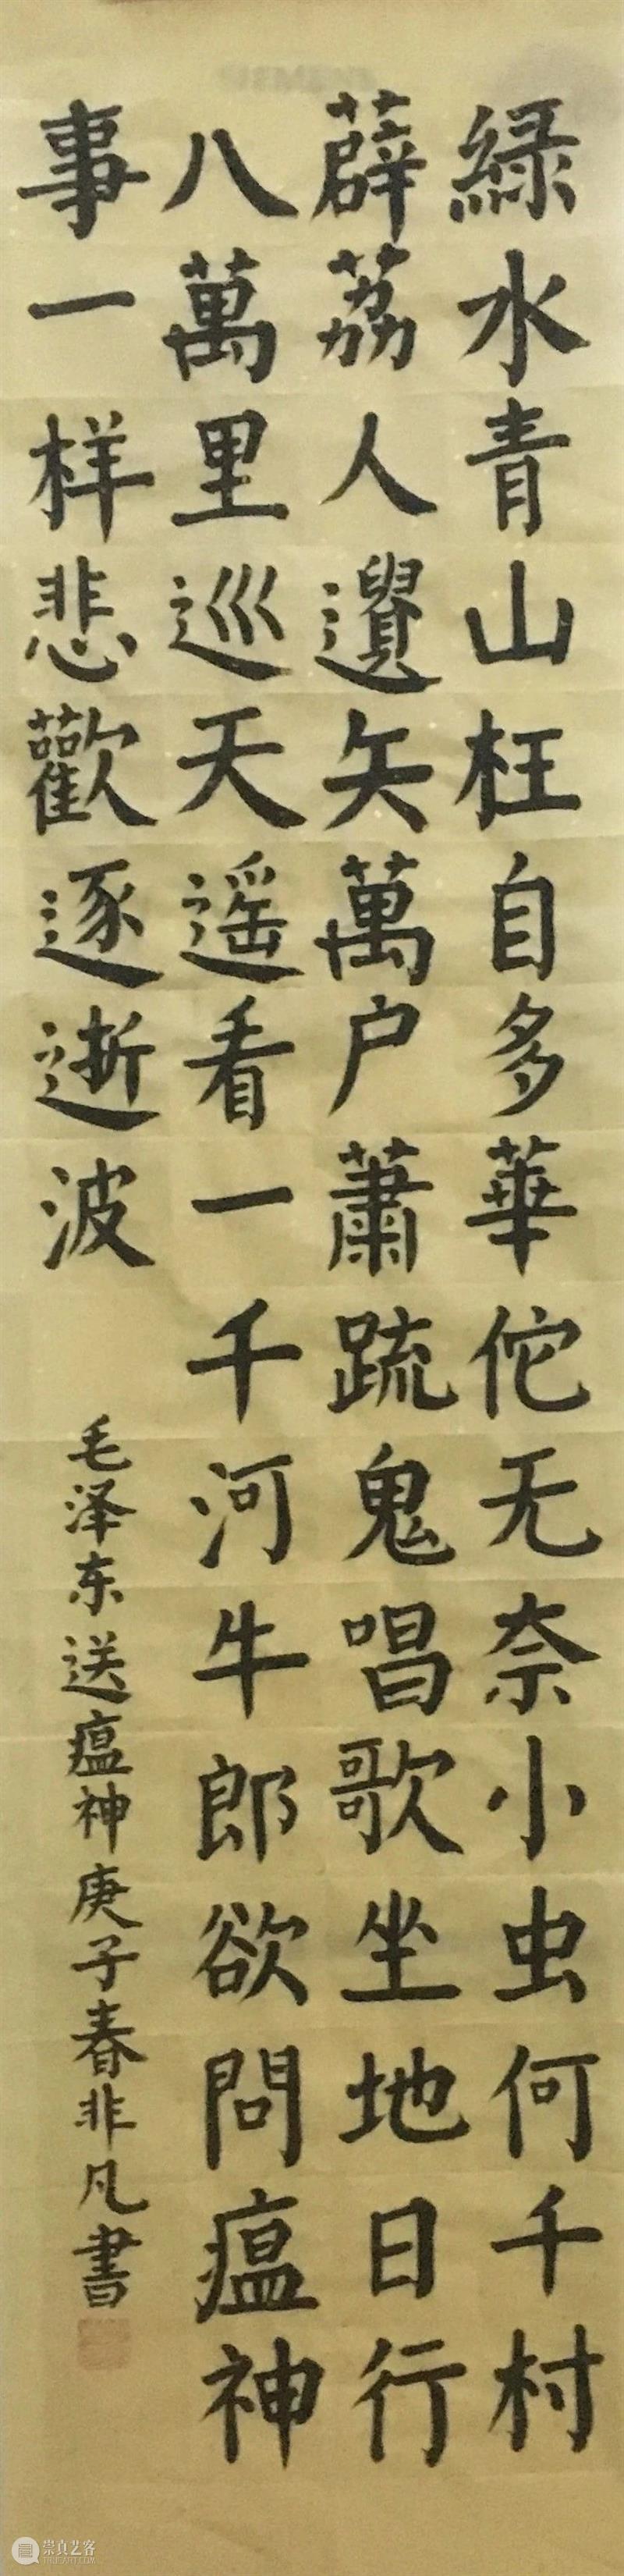 緑水青山枉自多華佗无奈小虫何千村
薜荔人遺矢萬户蕭疏鬼唱歌坐地日行
八萬里巡天遥看一千河牛郎欲問瘟神
事一样悲歡逐逝波
毛泽东送瘟神庚子春非凡書
崇真艺客